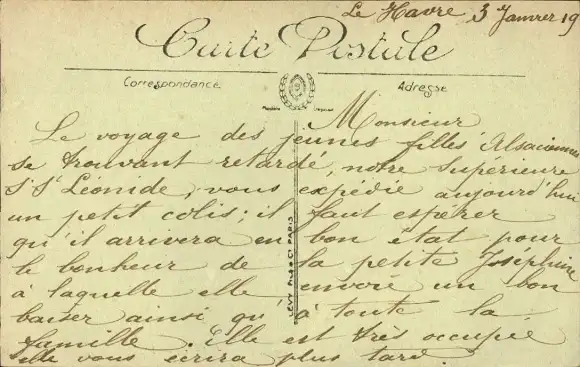 Le Havre 3 Janvier 19
Carte Postale
Correspondance
Adresse
Monsieur
Le voyage des jeunes filles Alsaciennes
se trouvant retardé, notre Supérieure
Sr St Léonide, vous expédie aujourd'hui
un petit colis; il faut espérer
qu'il arrivera en bon état pour
le bonheur de la petite Joséphine
à laquelle elle envoie un bon
baiser ainsi qu'à toute la
famille. Elle est très occupée
elle vous écrira plus tard.
LÉVY FILS & Cie PARIS